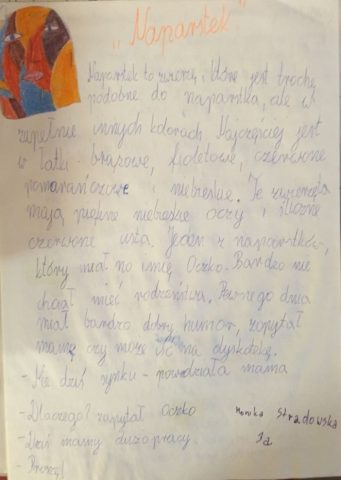 "Naparstek"
Naparstek to zwierzę, które jest trochę
podobne do naparstka, ale w
zupełnie innych kolorach. Najczęściej jest
w łatki - brązowe, fioletowe, czerwone
pomarańczowe i niebieskie. Te zwierzęta
mają piękne niebieskie oczy i śliczne
czerwone usta. Jeden z naparstków,
który miał na imię Oczko. Bardzo nie
chciał mieć rodzeństwa. Pewnego dnia
miał bardzo dobry humor, zapytał
mamę czy może iść na dyskotekę.
- Nie dziś synku - powiedziała mama
- Dlaczego? zapytał Oczko
- Dziś mamy dużo pracy.
- Proszę!
Monika Stradowska